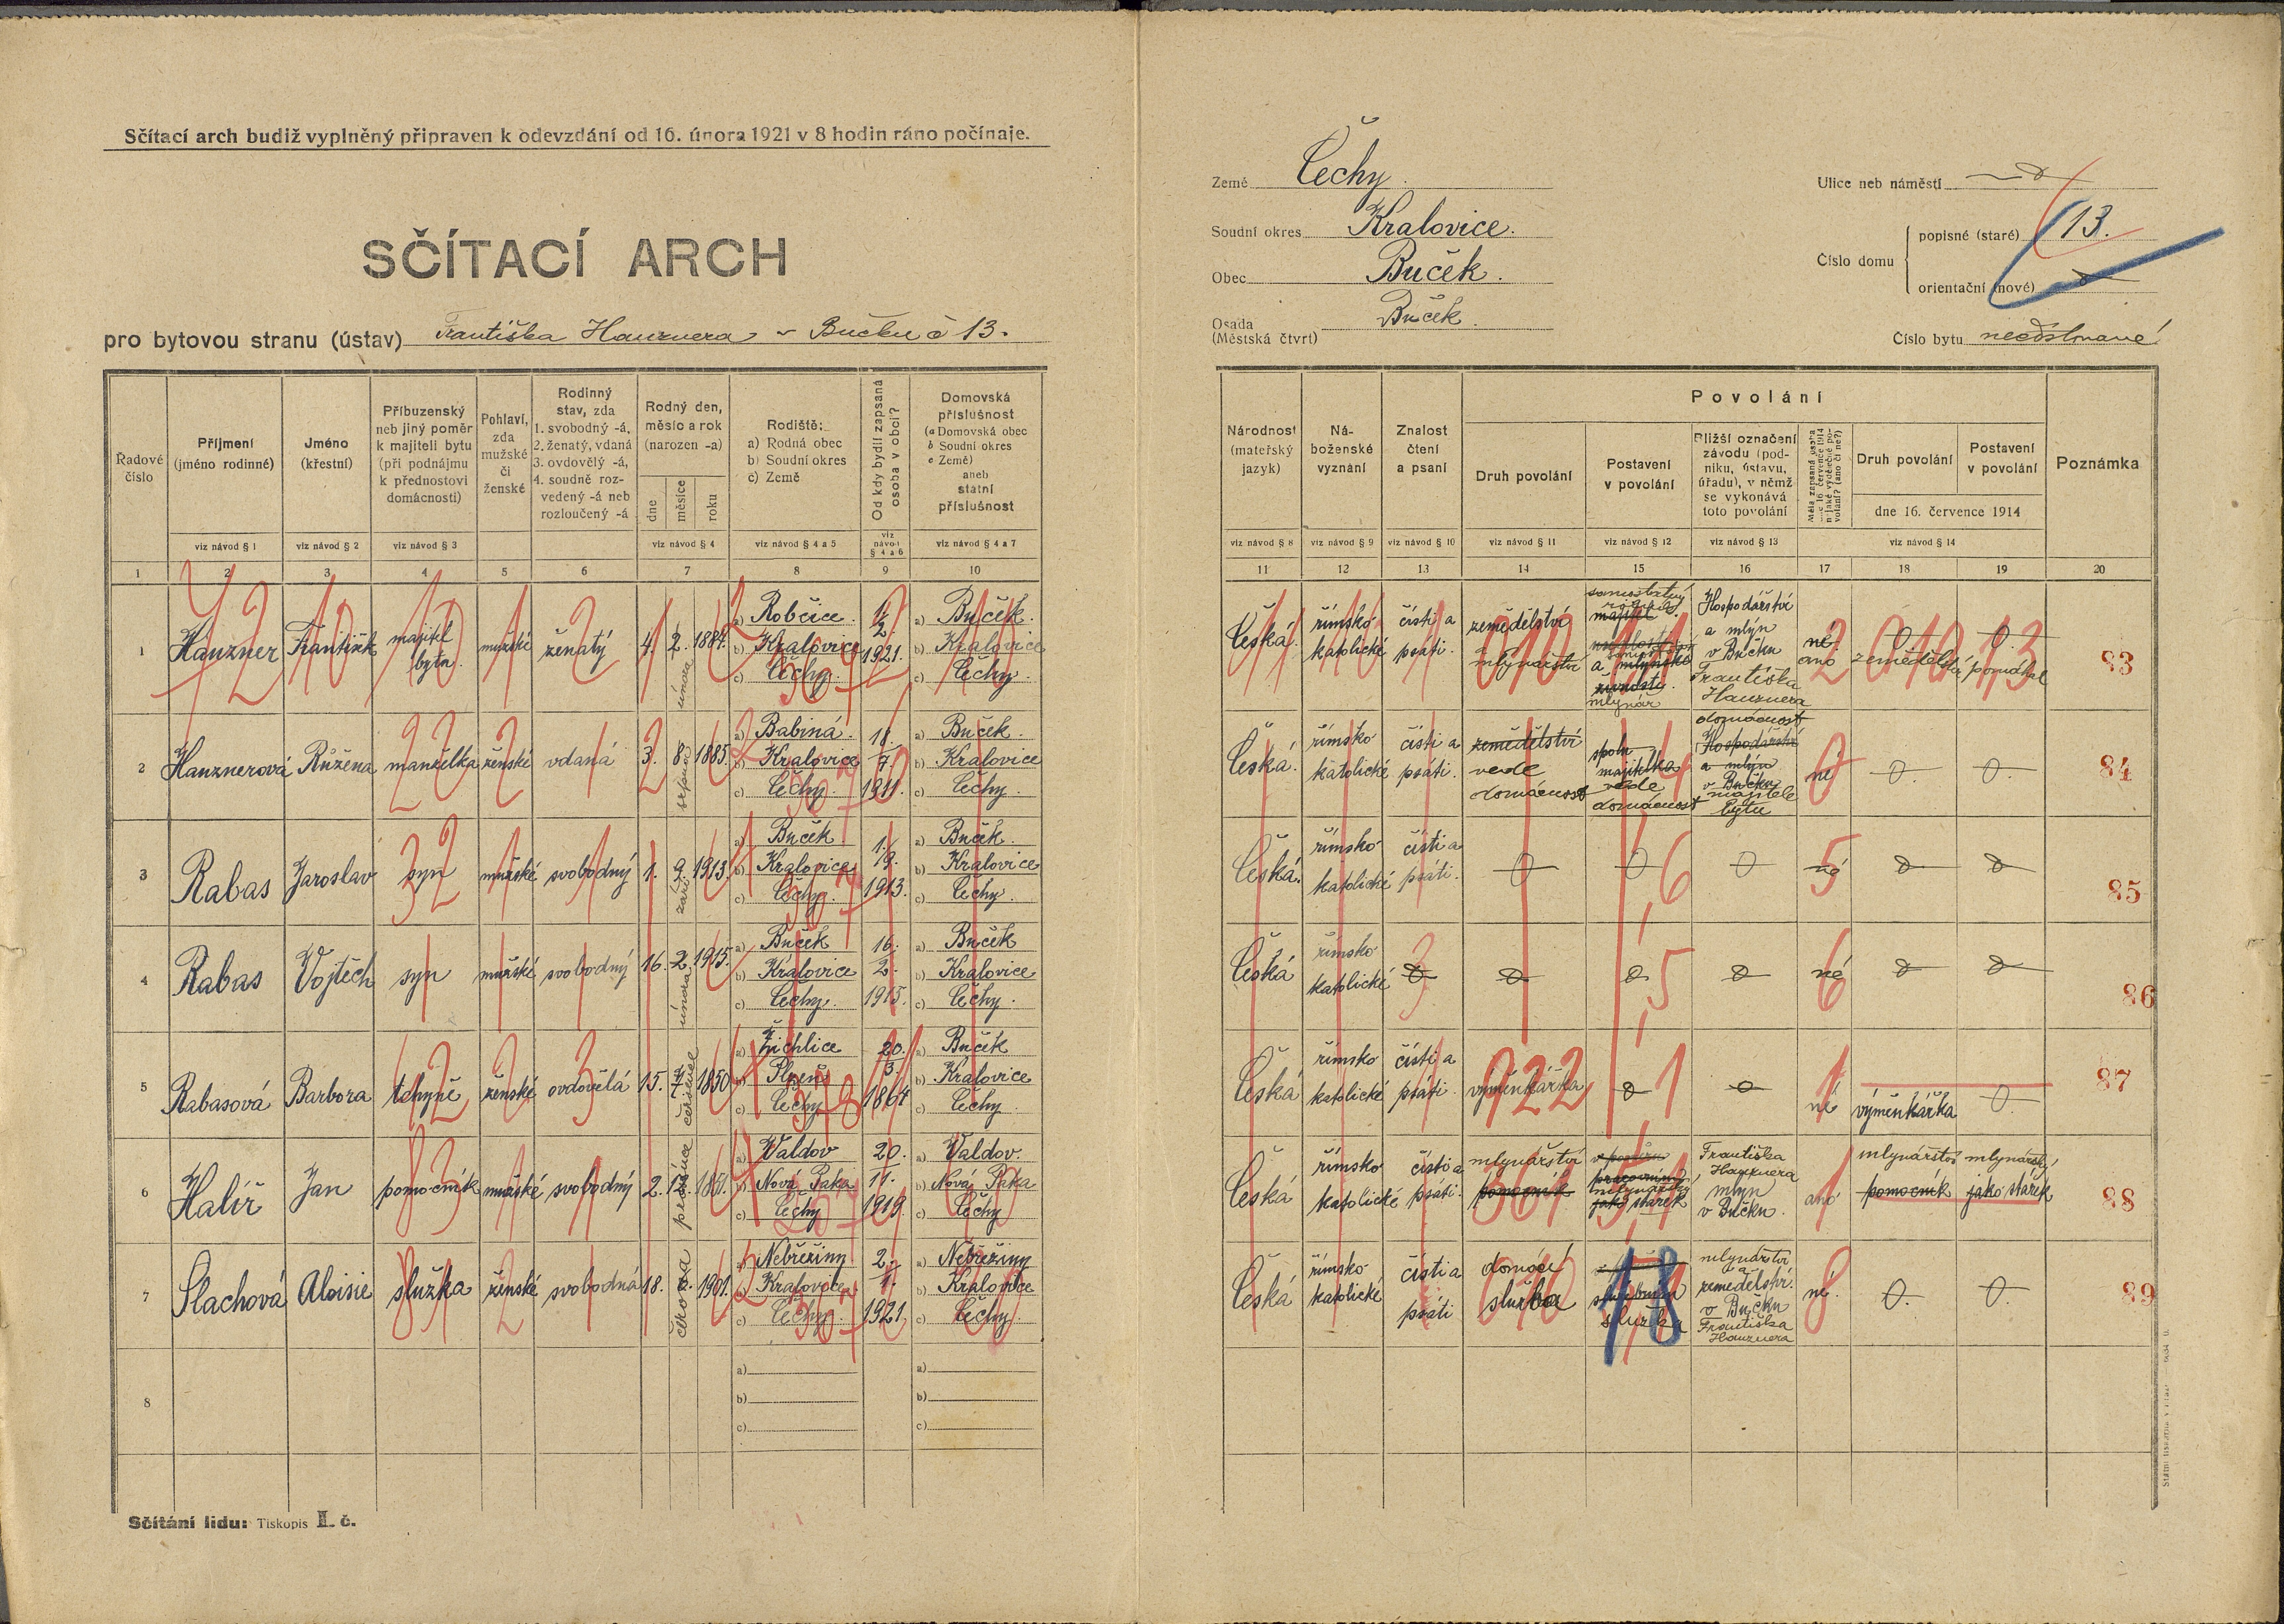 Sčítací arch budiž vyplněný připraven k odevzdání od 16. února 1921 v 8 hodin ráno počínaje.
SČÍTACÍ ARCH
pro bytovou stranu (ústav) Františka Hanznera v Bučku č 13.
Země Čechy.
Soudní okres Kralovice.
Obec Buček.
Osada Buček.
(Městská čtvrt)
Ulice neb náměstí
Číslo domu
popisné (staré) 13.
orientační (nové)
Číslo bytu neočíslované
Řadové číslo
Příjmení (jméno rodinné)
Jméno (křestní)
Příbuzenský neb jiný poměr k majiteli bytu (při podnájmu k přednostovi domácnosti)
Pohlaví, zda mužské či ženské
Rodinný stav, zda 1. svobodný -á, 2. ženatý, vdaná 3. ovdovělý -á, 4. soudně rozvedený -á neb rozloučený -á
Rodný den, měsíc a rok (narozen -a)
dne měsíce roku
Rodiště: a) Rodná obec b) Soudní okres c) Země
Od kdy bydlí zapsaná osoba v obci?
Domovská příslušnost (a Domovská obec b Soudní okres c Země) aneb státní příslušnost
viz návod § 1 viz návod § 2 viz návod § 3 viz návod § 4 viz návod § 4 a 5 viz návod § 4 a 6 viz návod § 4 a 7
1 2 3 4 5 6 7 8 9 10
Národnost (mateřský jazyk)
Náboženské vyznání
Znalost čtení a psaní
Povolání
Druh povolání
Postavení v povolání
Bližší označení závodu (podniku, ústavu, úřadu), v němž se vykonává toto povolání
Druh povolání
Postavení v povolání
dne 16. července 1914
Poznámka
viz návod § 8 viz návod § 9 viz návod § 10 viz návod § 11 viz návod § 12 viz návod § 13 viz návod § 14
11 12 13 14 15 16 17 18 19 20
1 Hanzner František majitel bytu mužské ženatý 4. 2. února 1884. a) Robčice. b) Kralovice c) Čechy. 1. 2. 1921. a) Buček. b) Kralovice c) Čechy.
Česká. římsko katolické čísti a psáti. zemědělství mlynářství samostatný rolník a mlynář Hospodářství a mlýn v Bučku Františka Hanznera né ano 0 zemědělství 0 pomáhal 83
2 Hanznerová Růžena manželka ženské vdaná 3. 8. srpna 1885. a) Babiná. b) Kralovice c) Čechy. 18. 7. 1911. a) Buček. b) Kralovice c) Čechy.
Česká. římsko katolické čísti a psáti. zemědělství vede domácnost spolumajitelka vede domácnost domácnost Hospodářství a mlýn v Bučku majitele bytu né 0. 0. 84
3 Rabas Jaroslav syn mužské svobodný 1. 9. září 1913. a) Buček b) Kralovice c) Čechy. 1. 9. 1913. a) Buček. b) Kralovice c) Čechy.
Česká. římsko katolické čísti a psáti. 0 0 0 né 0 0 85
4 Rabas Vojtěch syn mužské svobodný 16. 2. února 1915. a) Buček b) Kralovice c) Čechy. 16. 2. 1915. a) Buček b) Kralovice c) Čechy.
Česká římsko katolické 0 0 0 0 né 0 0 86
5 Rabasová Barbora tchyně ženské ovdovělá 15. 7. července 1850 a) Žichlice b) Plzeň c) Čechy 20. 3. 1864 a) Buček b) Kralovice c) Čechy.
Česká římsko katolické čísti a psáti. výměnkářka 0 0 né výměnkářka 0. 87
6 Halíř Jan pomocník mužské svobodný 2. 12. prosince 1851. a) Valdov b) Nová Paka c) Čechy 20. 11. 1919. a) Valdov. b) Nová Paka c) Čechy
Česká římsko katolické čísti a psáti. mlynářství pomocník jako stárek Františka Hanznera mlýn v Bučku. ano mlynářství pomocník mlynářský jako stárek 88
7 Šlachová Aloisie služka ženské svobodná 18. 6. června 1901. a) Nebřeziny b) Kralovice c) Čechy. 2. 1. 1921. a) Nebřeziny b) Kralovice c) Čechy.
Česká římsko katolické čísti a psáti domácí služba služka mlynářství a zemědělství v Bučku Františka Hanznera né. 0. 0. 89
8 a) b) c) a) b) c)
Sčítání lidu: Tiskopis II. č.